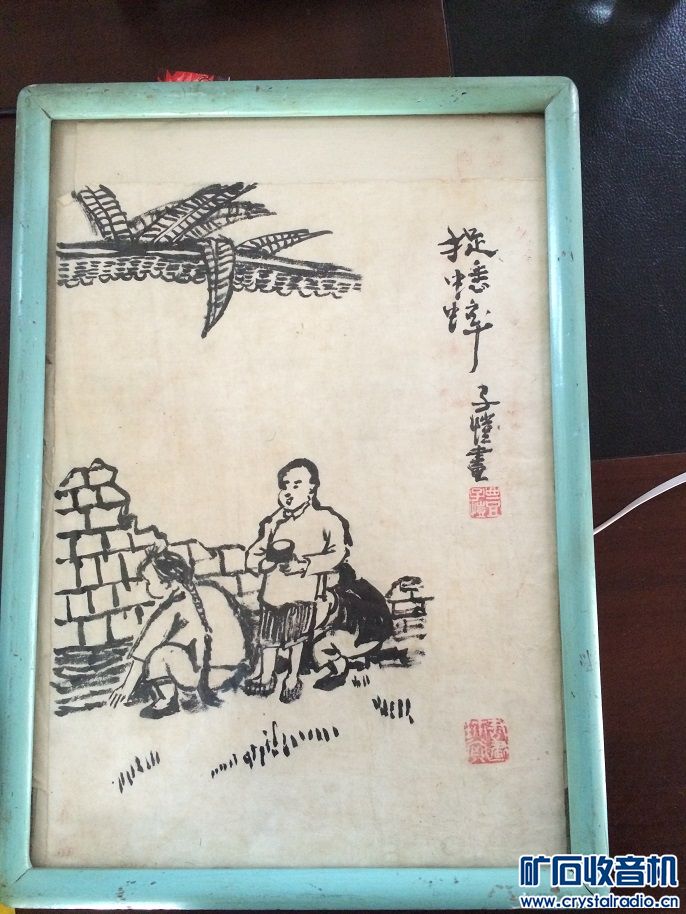 捉蟋蟀
子愷畫
豐子愷
矿石收音机
www.crystalradio.cn